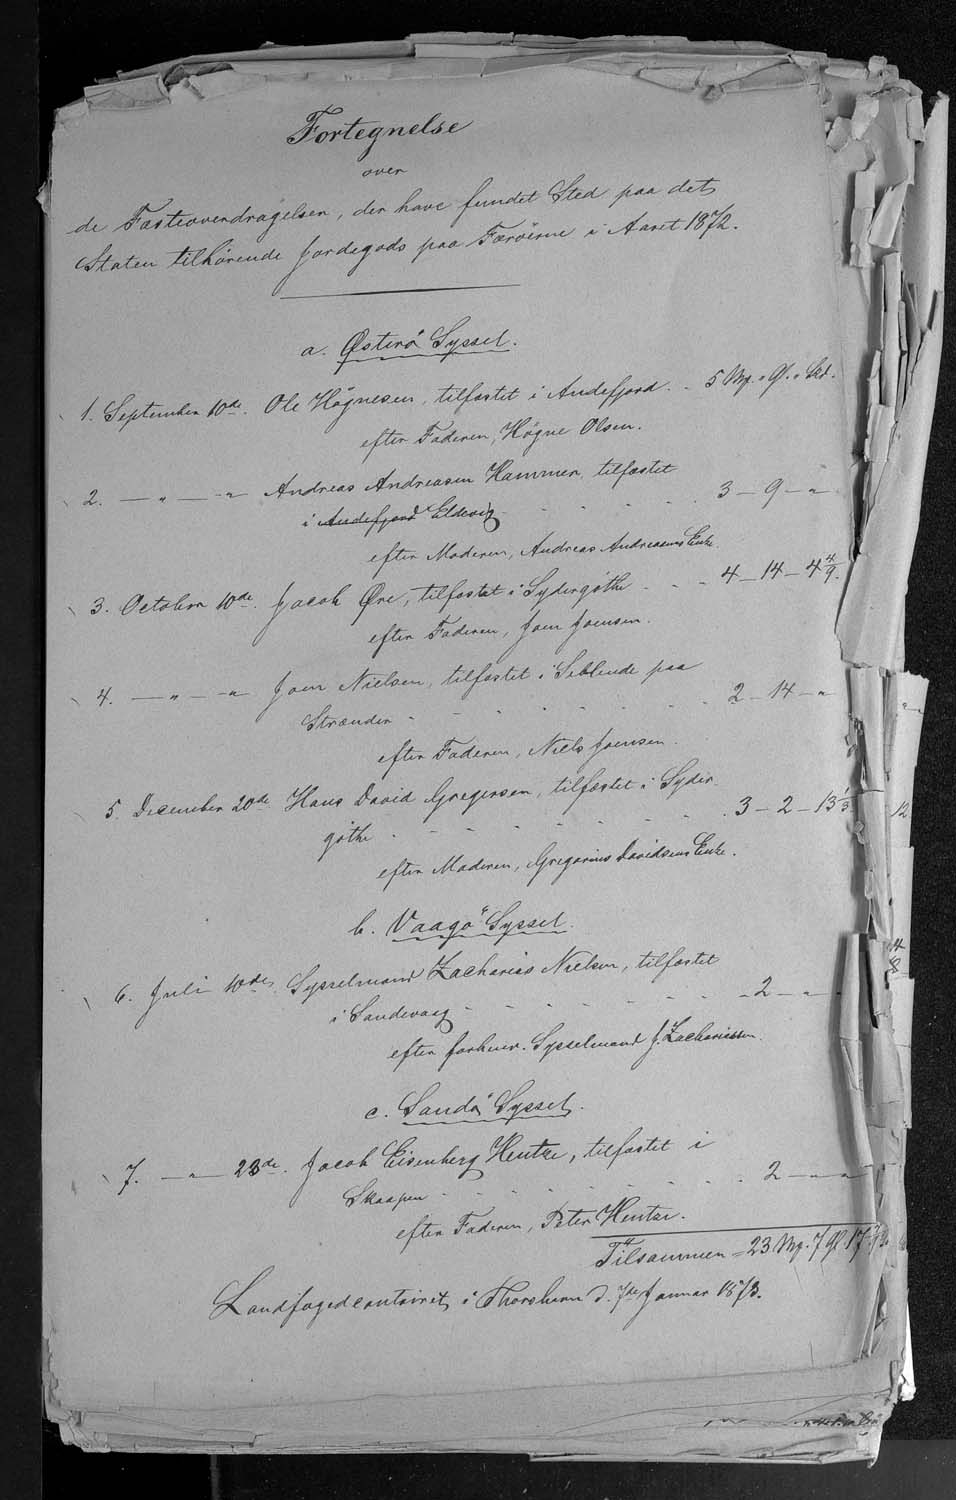 Fortegnelse
over
de Fæsteoverdragelser, der have fundet Sted paa det
Staten tilhørende Jordegods paa Færöerne i Aaret 1872.
a. Østerö Syssel.
1. September 10de. Ole Högnesen, tilfæstet i Andefjord. - 5 Mp. " Gl. " Skd.
efter Faderen, Högne Olsen.
2. — " — " Andreas Andreasen Hammer, tilfæstet
i Andefjord Eldevig - - - - - 3 - 9 - "
efter Moderen, Andreas Andreasens Enke.
3. October 10de. Jacob Øre, tilfæstet i Sydergöthe - - - 4 - 14 - 4 4/9.
efter Faderen, Joen Joensen.
4. — " — " Joen Nielsen, tilfæstet i Seblende paa
Strænder - - - - - - - 2 - 14 - "
efter Faderen, Niels Joensen.
5. December 20de Hans David Gregersen, tilfæstet i Syder-
göthe - - - - - - - 3 - 2 - 13 1/3
efter Moderen, Gregorius Davidsens Enke.
12
b. Vaagö Syssel.
6. Juli 10de. Sysselmand Zacharias Nielsen, tilfæstet
i Sandevaag - - - - - - - 2 - " -
efter forhenv. Sysselmand J. Zachariassen.
c. Sandö Syssel.
7. — " — 23de. Jacob Eisenberg Hentze, tilfæstet i
Skaapen - - - - - - - 2 - " - "
efter Faderen, Peter Hentze.
Tilsammen = 23 Mp. 7 Gl. 17 7/9
Landfogedcontoiret i Thorshavn d. 7de Januar 1873.